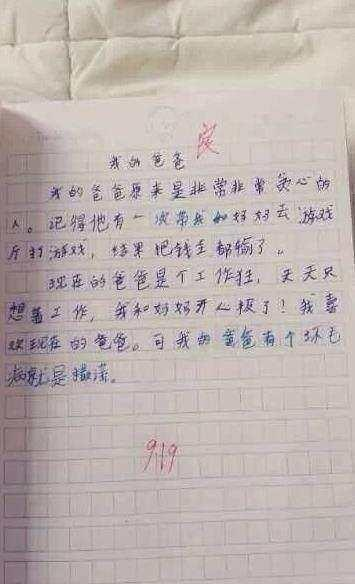 我的爸爸 良
我的爸爸原来是非常非常贪心的
人。记得他有一次带我和好好去游戏
厅打游戏，结果把钱全都输了。
现在的爸爸是个工作狂，天天只
想着工作，我和好好开心极了！我喜
欢现在的爸爸。可我的爸爸有个坏毛
病就是
9.19